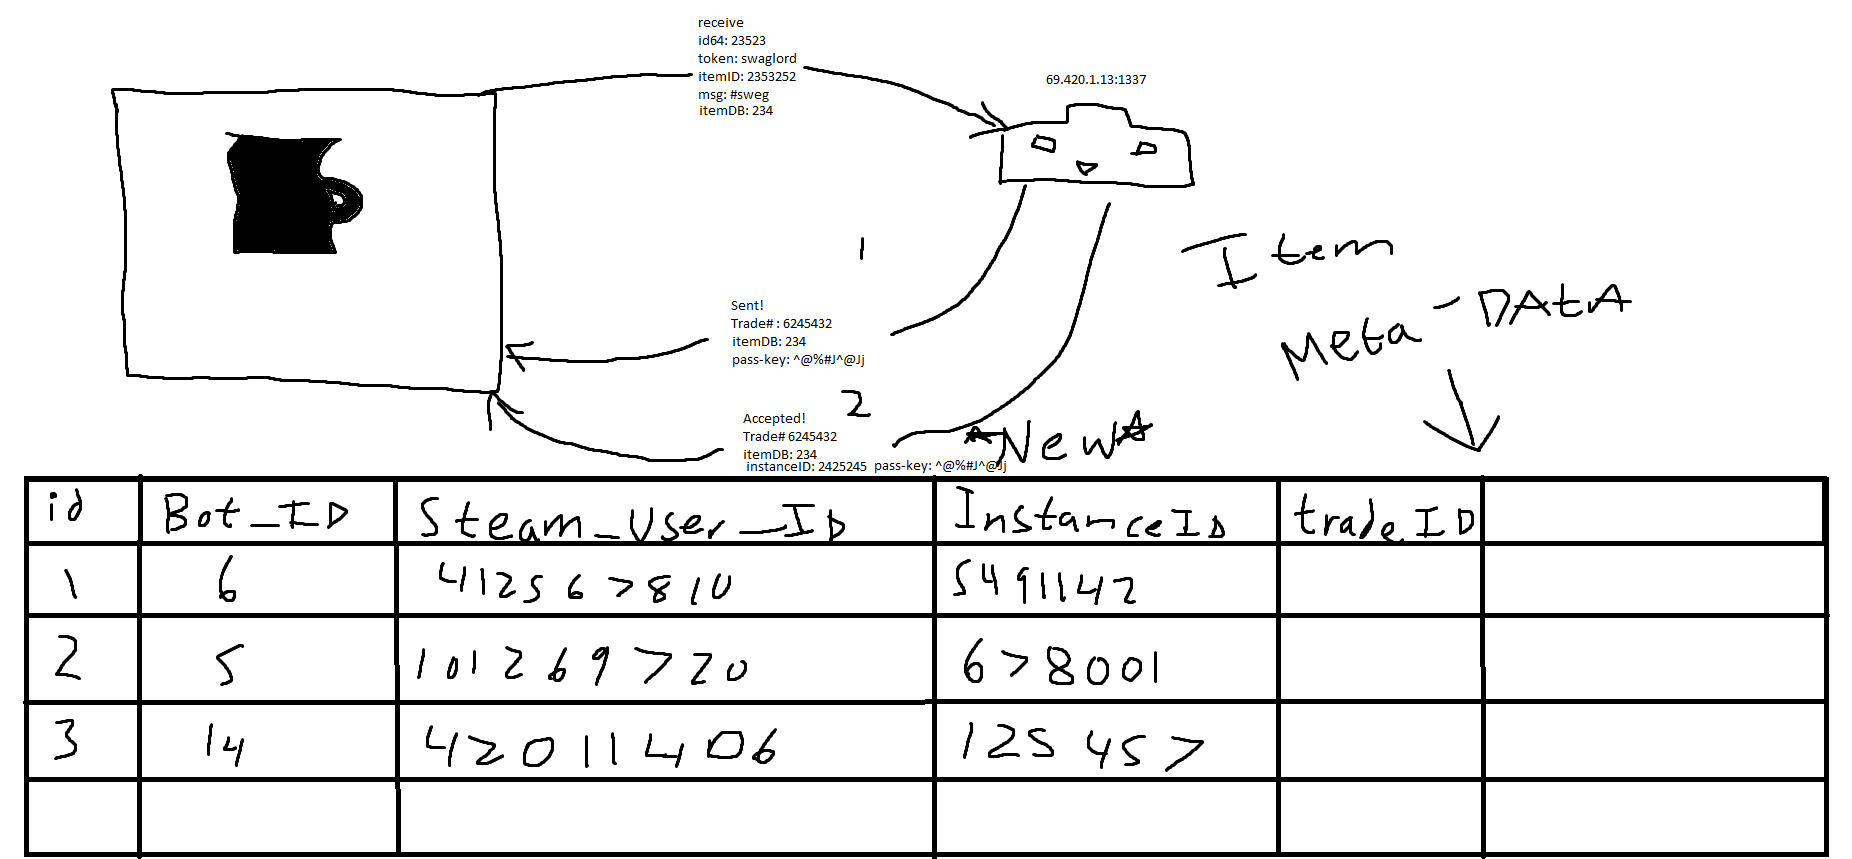 receive
id64: 23523
token: swaglord
itemID: 2353252
msg: #sweg
itemDB: 234
69.420.1.13:1337
1
Item
Meta-DAtA
Sent!
Trade# : 6245432
itemDB: 234
pass-key: ^@%#J^@Jj
2
Accepted!
Trade# 6245432
itemDB: 234
instanceID: 2425245 pass-key: ^@%#J^@Jj
New
id Bot_ID Steam_User_ID InstanceID tradeID
1 6 412567810 5491142
2 5 101269720 678001
3 14 420111406 125457